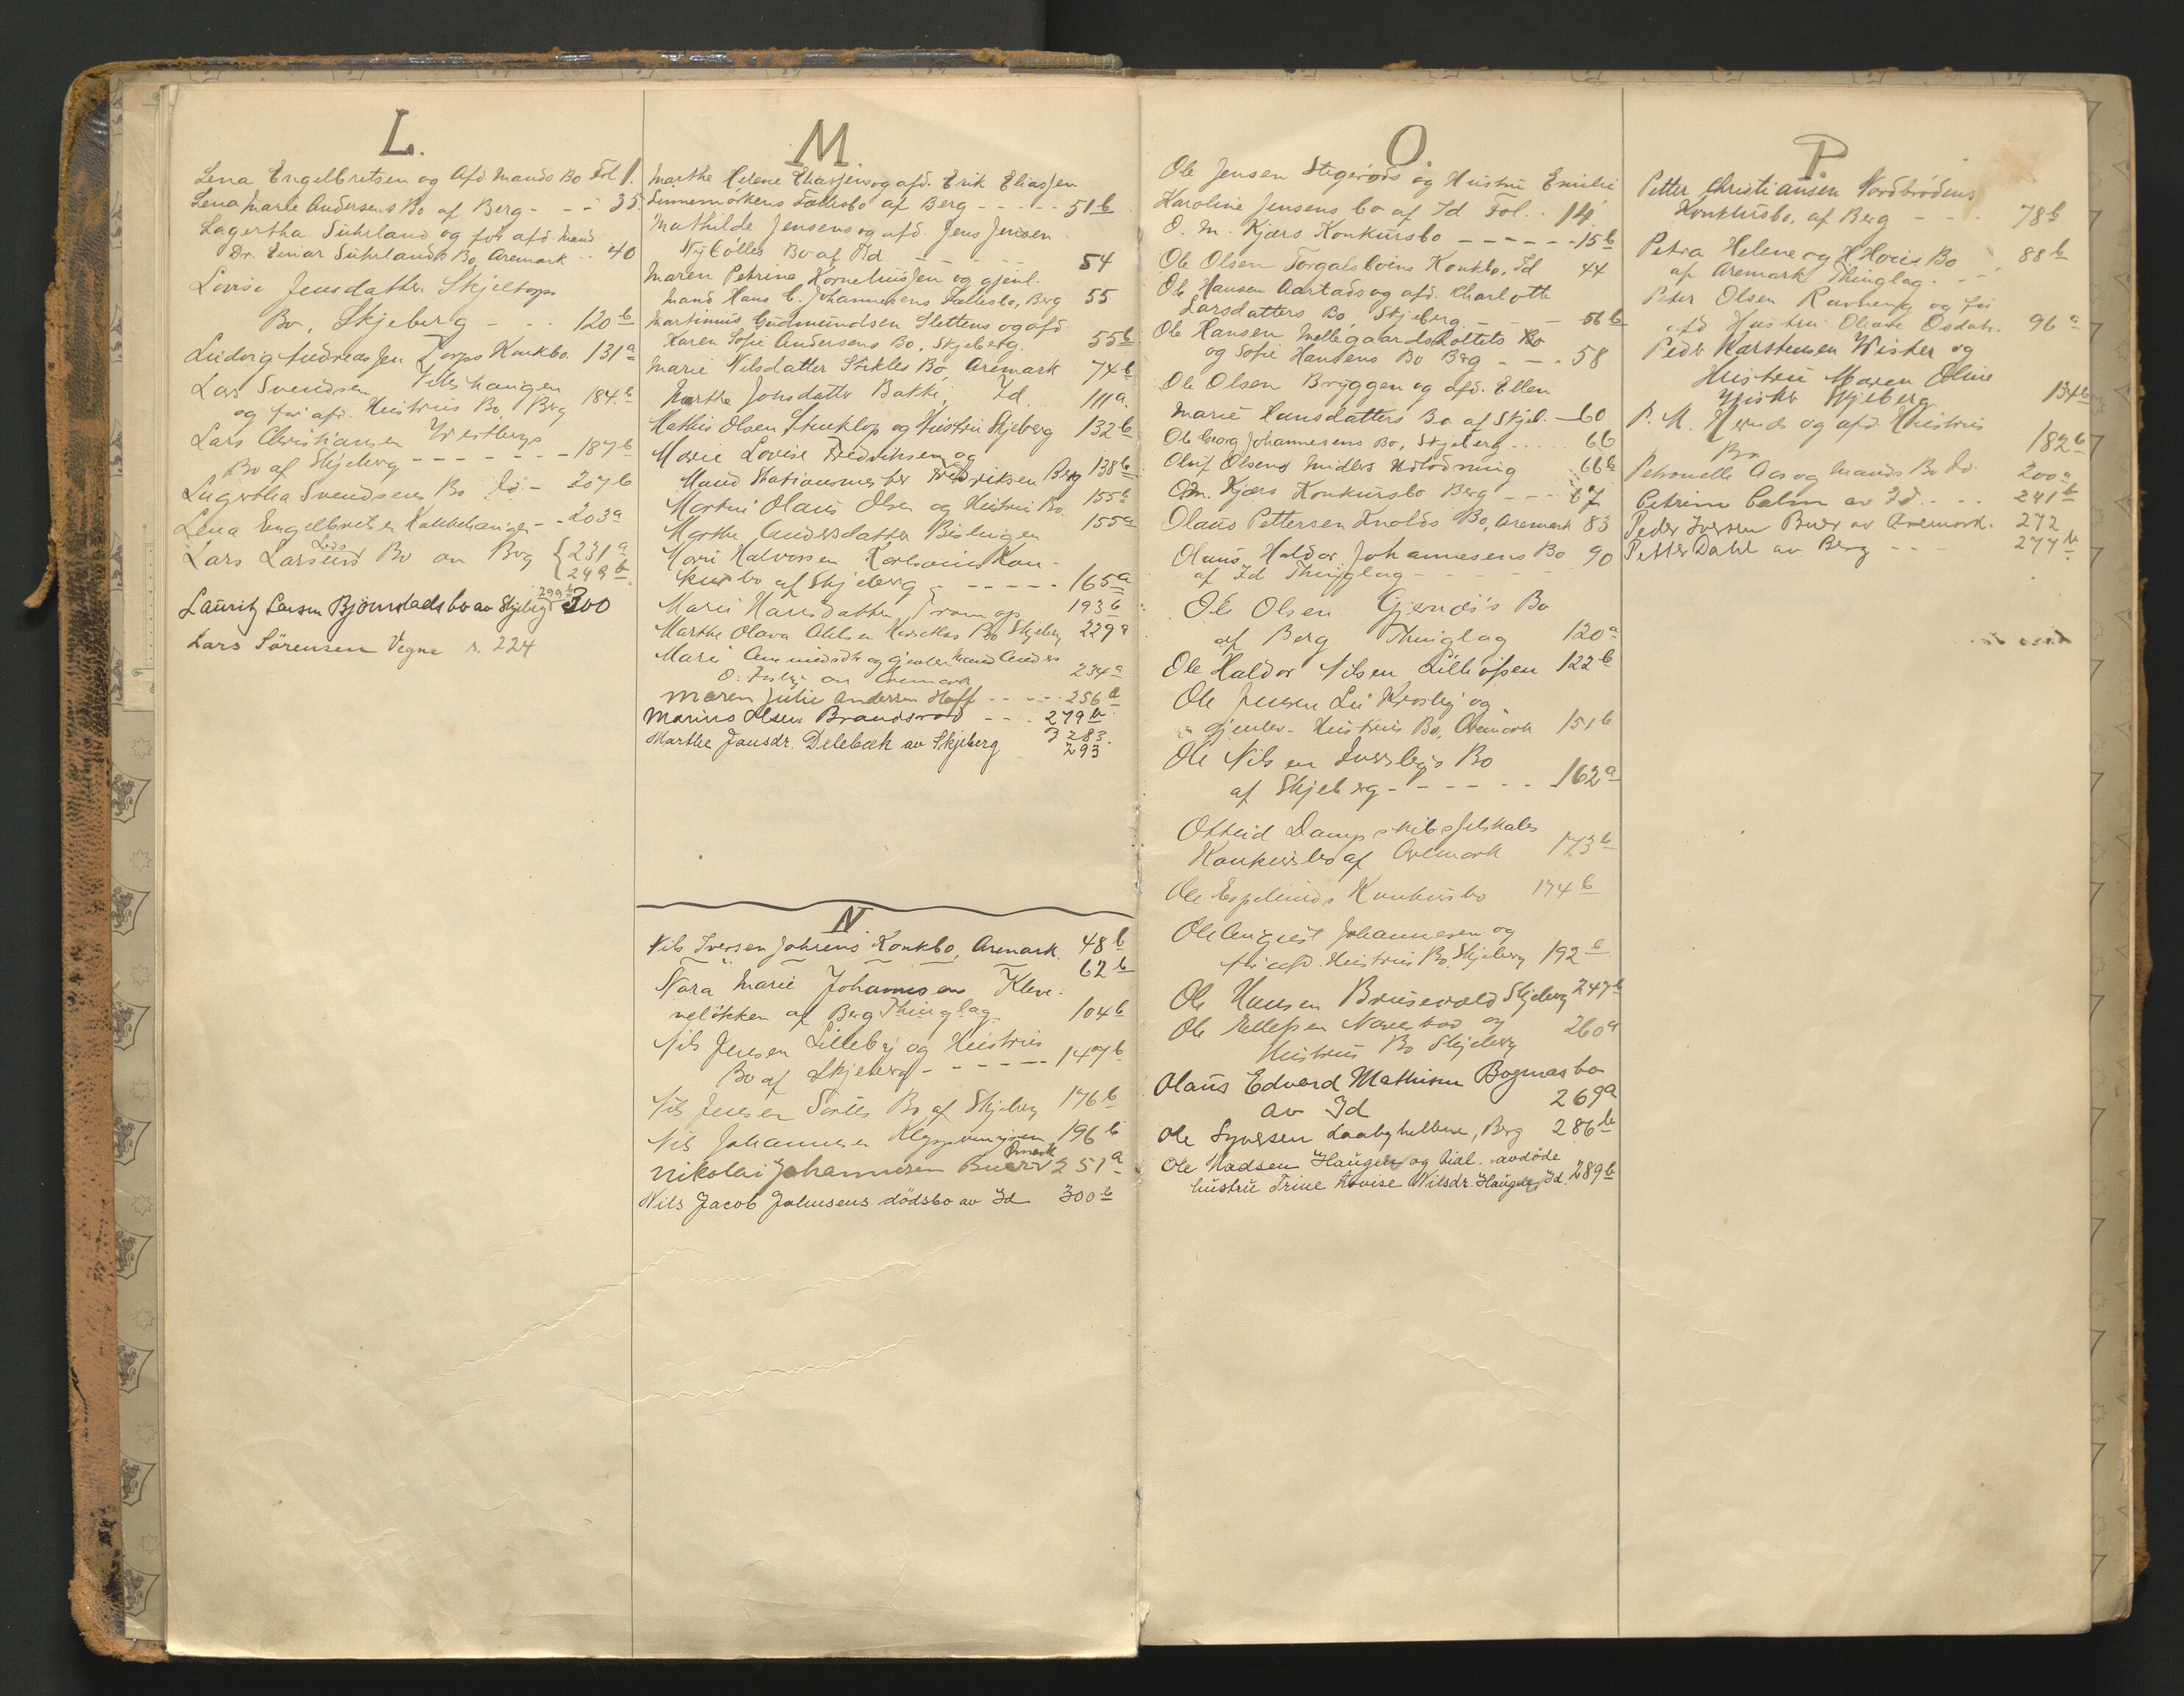 L.
Lena Engelbretsen og Afd. Mands Bo Fol 1.
Lena Marie Andersens Bo af Berg - - - 35.
Lagertha Suhrland og før afd. Mand
Dr. Einar Suhrlands Bo, Aremark .. 40
Lovise Jensdatter Skjeltorps
Bo, Skjeberg - - . 120 b
Ludvig Andreassen Torps Konkbo. 131 a
Lars Svendsen
og før afd. Hustrus Bo, Berg 184. b
Lars Christiansen Westbergs
Bo af Skjeberg - - - - - - - 187 b
Lagertha Svendsens Bo Id. - 207 b
Lena Engelbretsen Kokkehaugen - - 203 a
Lars Larsens Bo av Berg { 231 a
249 b
299 b
Lauritz Larsen Bjørnstads bo av Skjeberg 300
Lars Sørensen Vegne s. 224
M.
Marthe Helene Eliassens og afd. Erik Eliassen
Linnemørkens Fællesbo af Berg - - - - - 51 b
Mathilde Jensens og afd. Jens Jensen
Nybølles Bo af Id. - - - - 54
Maren Petrine Korneliussen og gjenl.
Mand Hans C. Johannesens Fællesbo, Berg 55
Martinius Gudmundsen Slettens og afd.
Karen Sofie Andersens Bo, Skjeberg. 55 b
Marie Nilsdatter Stikles Bo, Aremark 74 b
Marthe Jonsdatter Bakke, Id. 111 a.
Mathis Olsen Stenklop og Hustru Skjeberg 132 b
Marie Lovise Fredriksen og
Mand Stationsmester Fredriksen Berg 138 b
Martin Olaus Olsen og Hustrus Bo. 155 a
Marthe Andersdatter Bislingen 155 a
Marie Halvorsen Karlsones Kon-
kursbo af Skjeberg - - - - - - 165 a
Marie Hansdatter 193 b
Marthe Olava Ohlsen Bo Skjeberg 229 a
Marie og gjenlev. Mand Anders
O. av Aremark 234 a
Maren Julie Andersen Hoff - - - - - 256 a
Marius Olsen Brandsrød - - . 279 b
Marthe Jansdr. Delebæk av Skjeberg 283.
293
N.
Nils Iversen Jahrens Konkbo, Aremark. 48 b
62 b
Nora Marie Johannesen Kleve-
veløkken af Berg Thinglag. 104 b
Nils Jensen Lilleby og Hustrus
Bo af Skjeberg - - - - - - 147 b
Nils Jensen Bo af Skjeberg 176 b
Nils Johannesen 196 b
Nikolai Johannesen Buer 251 a
Nils Jacob Johnsens dødsbo av Id 300 b
O.
Ole Jensen Stegerøds og Hustru Emilie
Karoline Jensens bo af Id Fol. . 14
O. M. Kjærs Konkursbo - - - - - - 15 b
Ole Olsen Torgalsbøens Konkbo, Id 44
Ole Hansen Aartads og afd. Charlotte
Larsdatters Bo, Skjeberg. - - - - 56 b
Ole Hansen Mellegaardslottets Bo
og Sofie Hansens Bo Berg - - . 58
Ole Olsen Bryggen og afd. Ellen
Marie Hansdatters Bo af Skjeb. - 60
Ole Georg Johannesens Bo, Skjeberg .... 66
Oluf Olsens midlers Udlodning 66 b
O.M. Kjærs Konkursbo Berg - - - 67
Olaus Pettersen Knolds Bo, Aremark 83
Olaus Haldor Johannesens Bo 90
af Id Thinglag - - - -
Ole Olsen Gjendes's Bo
af Berg Thinglag 120 a
Ole Haldor Nilsen Lilleossen 122 b
Ole Jensen Lie Krosby og
gjenlev. Hustrus Bo, Aremark 151 b
Ole Nilsen Iverslys Bo
af Skjeberg - - - - - - - 162 a
Otteid Dampskibsselskabs
Konkursbo af Aremark 173 b
Ole Espelunds Konkursbo 174 b
Ole August Johannesen og
før afd. Hustrus Bo, Skjeberg 192 b
Ole Hansen Brusevold Skjeberg 247 b
Ole Ellefsen og 260 a
Hustrus Bo Skjeberg
Olaus Edvard Mathisen Bogmas bo
av Id 269 a
Ole Syversen Laabyhellene, Berg 286 b
Ole Madsen Haugen og tidl. avdøde
hustru Trine Lovise Nilsdr. Haugen, Id. 289 b
P.
Petter Christiansen Nordbrødens
Konkursbo, af Berg - - - . 78 b
Petra Helene og H. Hovis Bo 88 b
af Aremark Thinglag. - -
Peter Olsen Ravneng og før
afd Hustru Oleane Osdatr. 96 a
Peder Karstensen Wister og
Hustru Maren Oline
Wister Skjeberg 134 b
P. M. og afd. Hustrus
Bo 182 b
Petronelle Aas og Mands Bo Id. 200 a
Petrine Calm av Id . . . . 241 b
Peder Iversen Buer av Aremark. 272
Petter Dahl av Berg - - . 277 b